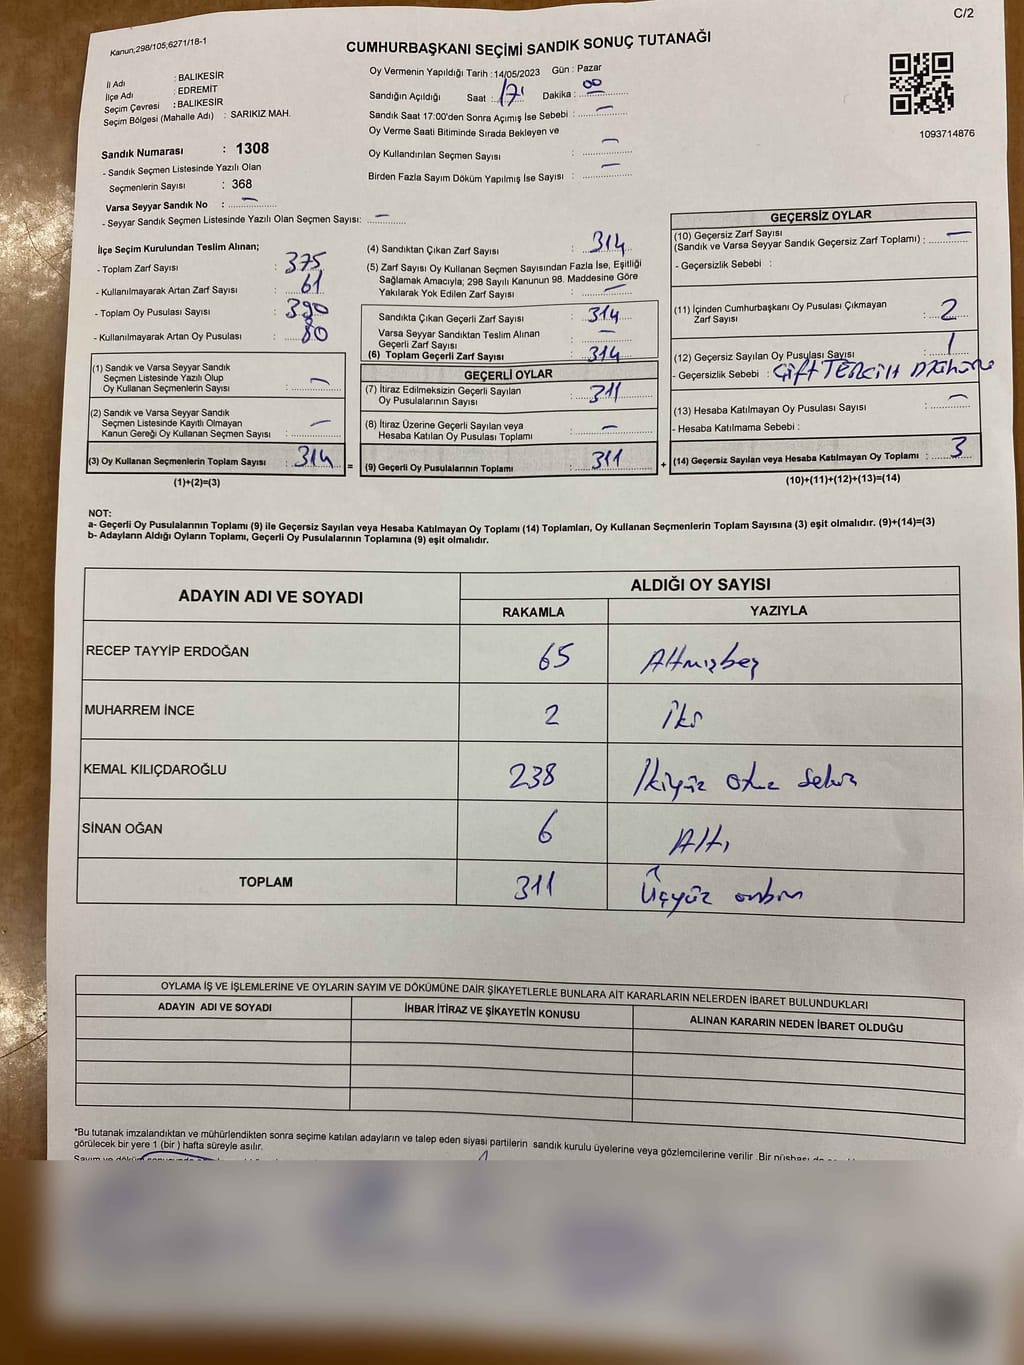 C/2
Kanun;298/105;6271/18-1
CUMHURBAŞKANI SEÇİMİ SANDIK SONUÇ TUTANAĞI
İl Adı : BALIKESİR
İlçe Adı : EDREMİT
Seçim Çevresi : BALIKESİR
Seçim Bölgesi (Mahalle Adı) : SARIKIZ MAH.
Oy Vermenin Yapıldığı Tarih : 14/05/2023 Gün : Pazar
Sandığın Açıldığı Saat : 17 Dakika : 00
Sandık Saat 17:00'den Sonra Açımış İse Sebebi : —
Oy Verme Saati Bitiminde Sırada Bekleyen ve
Oy Kullandırılan Seçmen Sayısı : —
Birden Fazla Sayım Döküm Yapılmış İse Sayısı : —
1093714876
Sandık Numarası : 1308
- Sandık Seçmen Listesinde Yazılı Olan
Seçmenlerin Sayısı : 368
Varsa Seyyar Sandık No : —
- Seyyar Sandık Seçmen Listesinde Yazılı Olan Seçmen Sayısı: —
İlçe Seçim Kurulundan Teslim Alınan;
- Toplam Zarf Sayısı : 375
- Kullanılmayarak Artan Zarf Sayısı : 61
- Toplam Oy Pusulası Sayısı : 390
- Kullanılmayarak Artan Oy Pusulası : 80
(1) Sandık ve Varsa Seyyar Sandık
Seçmen Listesinde Yazılı Olup
Oy Kullanan Seçmenlerin Sayısı : —
(2) Sandık ve Varsa Seyyar Sandık
Seçmen Listesinde Kayıtlı Olmayan
Kanun Gereği Oy Kullanan Seçmen Sayısı : —
(3) Oy Kullanan Seçmenlerin Toplam Sayısı : 314 =
(1)+(2)=(3)
(4) Sandıktan Çıkan Zarf Sayısı : 314
(5) Zarf Sayısı Oy Kullanan Seçmen Sayısından Fazla İse, Eşitliği
Sağlamak Amacıyla; 298 Sayılı Kanunun 98. Maddesine Göre
Yakılarak Yok Edilen Zarf Sayısı : —
Sandıkta Çıkan Geçerli Zarf Sayısı : 314
Varsa Seyyar Sandıktan Teslim Alınan
Geçerli Zarf Sayısı : —
(6) Toplam Geçerli Zarf Sayısı : 314
GEÇERLİ OYLAR
(7) İtiraz Edilmeksizin Geçerli Sayılan
Oy Pusulalarının Sayısı : 311
(8) İtiraz Üzerine Geçerli Sayılan veya
Hesaba Katılan Oy Pusulası Toplamı : —
(9) Geçerli Oy Pusulalarının Toplamı : 311 +
GEÇERSİZ OYLAR
(10) Geçersiz Zarf Sayısı
(Sandık ve Varsa Seyyar Sandık Geçersiz Zarf Toplamı) : —
- Geçersizlik Sebebi :
(11) İçinden Cumhurbaşkanı Oy Pusulası Çıkmayan
Zarf Sayısı : 2
(12) Geçersiz Sayılan Oy Pusulası Sayısı : 1
- Geçersizlik Sebebi : Çift TERCİH
(13) Hesaba Katılmayan Oy Pusulası Sayısı : —
- Hesaba Katılmama Sebebi :
(14) Geçersiz Sayılan veya Hesaba Katılmayan Oy Toplamı : 3
(10)+(11)+(12)+(13)=(14)
NOT:
a- Geçerli Oy Pusulalarının Toplamı (9) ile Geçersiz Sayılan veya Hesaba Katılmayan Oy Toplamı (14) Toplamları, Oy Kullanan Seçmenlerin Toplam Sayısına (3) eşit olmalıdır. (9)+(14)=(3)
b- Adayların Aldığı Oyların Toplamı, Geçerli Oy Pusulalarının Toplamına (9) eşit olmalıdır.
ADAYIN ADI VE SOYADI ALDIĞI OY SAYISI
RAKAMLA YAZIYLA
RECEP TAYYİP ERDOĞAN 65 Altmışbeş
MUHARREM İNCE 2 iki
KEMAL KILIÇDAROĞLU 238 İkiyüz otuz sekiz
SİNAN OĞAN 6 Altı
TOPLAM 311 Üçyüz onbir
OYLAMA İŞ VE İŞLEMLERİNE VE OYLARIN SAYIM VE DÖKÜMÜNE DAİR ŞİKAYETLERLE BUNLARA AİT KARARLARIN NELERDEN İBARET BULUNDUKLARI
ADAYIN ADI VE SOYADI İHBAR İTİRAZ VE ŞİKAYETİN KONUSU ALINAN KARARIN NEDEN İBARET OLDUĞU
*Bu tutanak imzalandıktan ve mühürlendikten sonra seçime katılan adayların ve talep eden siyasi partilerin sandık kurulu üyelerine veya gözlemcilerine verilir .Bir nüshası da
görülecek bir yere 1 (bir ) hafta süreyle asılır.